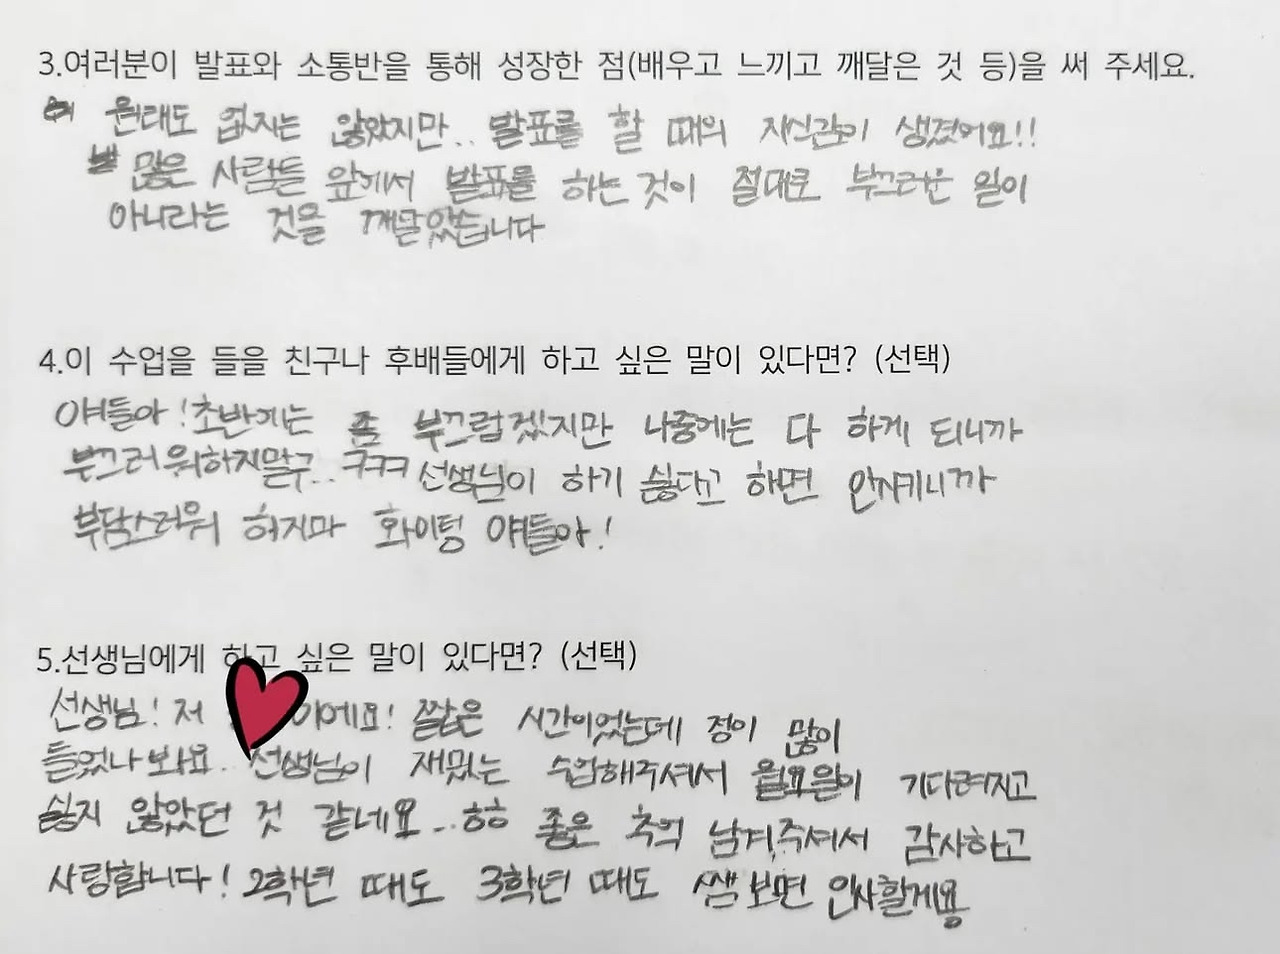 3.여러분이 발표와 소통반을 통해 성장한 점(배우고 느끼고 깨달은 것 등)을 써 주세요.
원래도 없지는 않았지만.. 발표를 할 때의 자신감이 생겼어요!!
많은 사람들 앞에서 발표를 하는 것이 절대로 부끄러운 일이
아니라는 것을 깨달았습니다
4.이 수업을 들을 친구나 후배들에게 하고 싶은 말이 있다면? (선택)
얘들아! 초반에는 좀 부끄럽겠지만 나중에는 다 하게 되니까
부끄러워하지말구.. ㅋㅋㅋ 선생님이 하기 싫다고 하면 안시키니까
부담스러워 하지마 화이팅 얘들아!
5.선생님에게 하고 싶은 말이 있다면? (선택)
선생님! 저 이에요! 짧은 시간이었는데 정이 많이
들었나봐요.. 선생님이 재밌는 수업해주셔서 월요일이 기다려지고
싫지 않았던 것 같네요..ㅎㅎ 좋은 추억 남겨주셔서 감사하고
사랑합니다! 2학년 때도 3학년 때도 쌤 보면 인사할게용